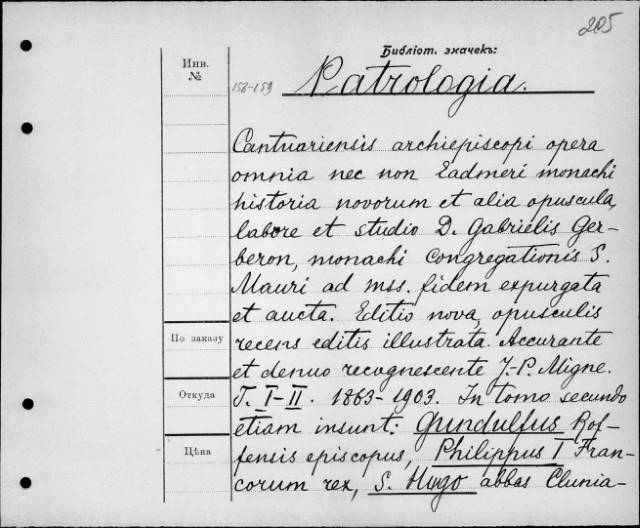 205
Библіот. значекъ:
Инв.
№
158-159
Patrologia.
Cantuariensis archiepiscopi opera
omnia nec non Eadmeri monachi
historia novorum et alia opuscula,
labore et studio D. Gabrielis Ger-
beron, monachi congregationis S.
Mauri ad mss. fidem expurgata
et aucta. Editio nova, opusculis
recens editis illustrata. Accurante
По заказу
et denuo recognescente J.-P. Migne.
Откуда
T. I-II. 1863-1903. In tomo secundo
etiam insunt: Gundulfus Rof-
Цѣна
fensis episcopus, Philippus I Fran-
corum rex, S. Hugo abbas Clunia-